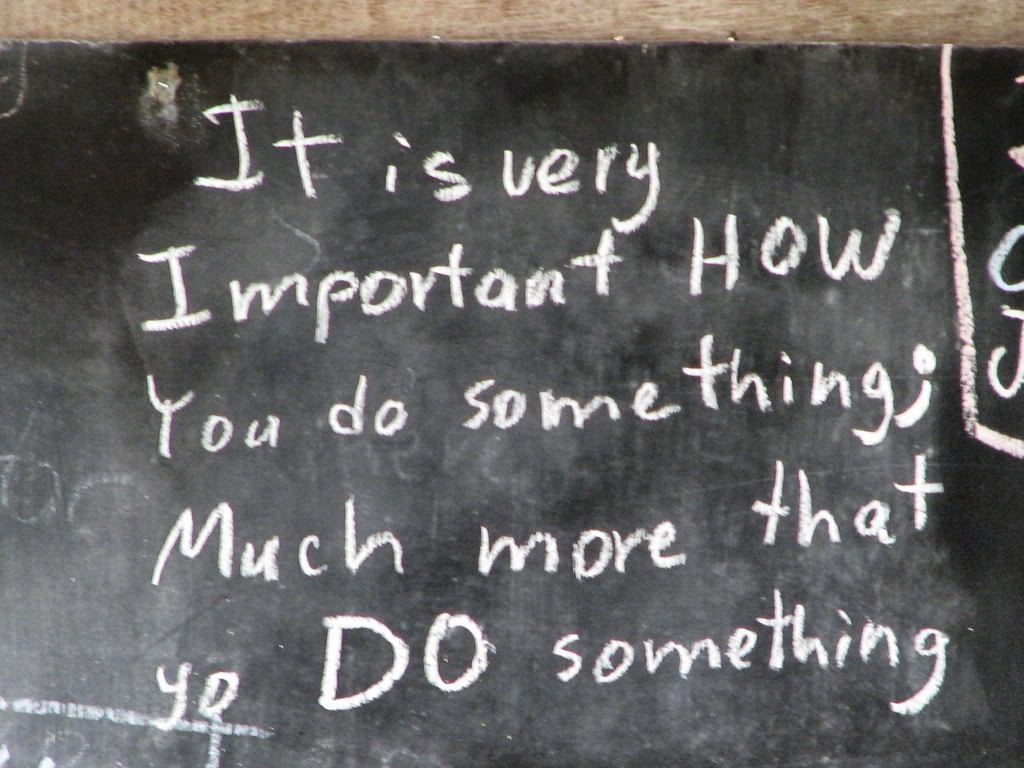 It is very
Important HOW
You do something;
Much more that
yo DO something